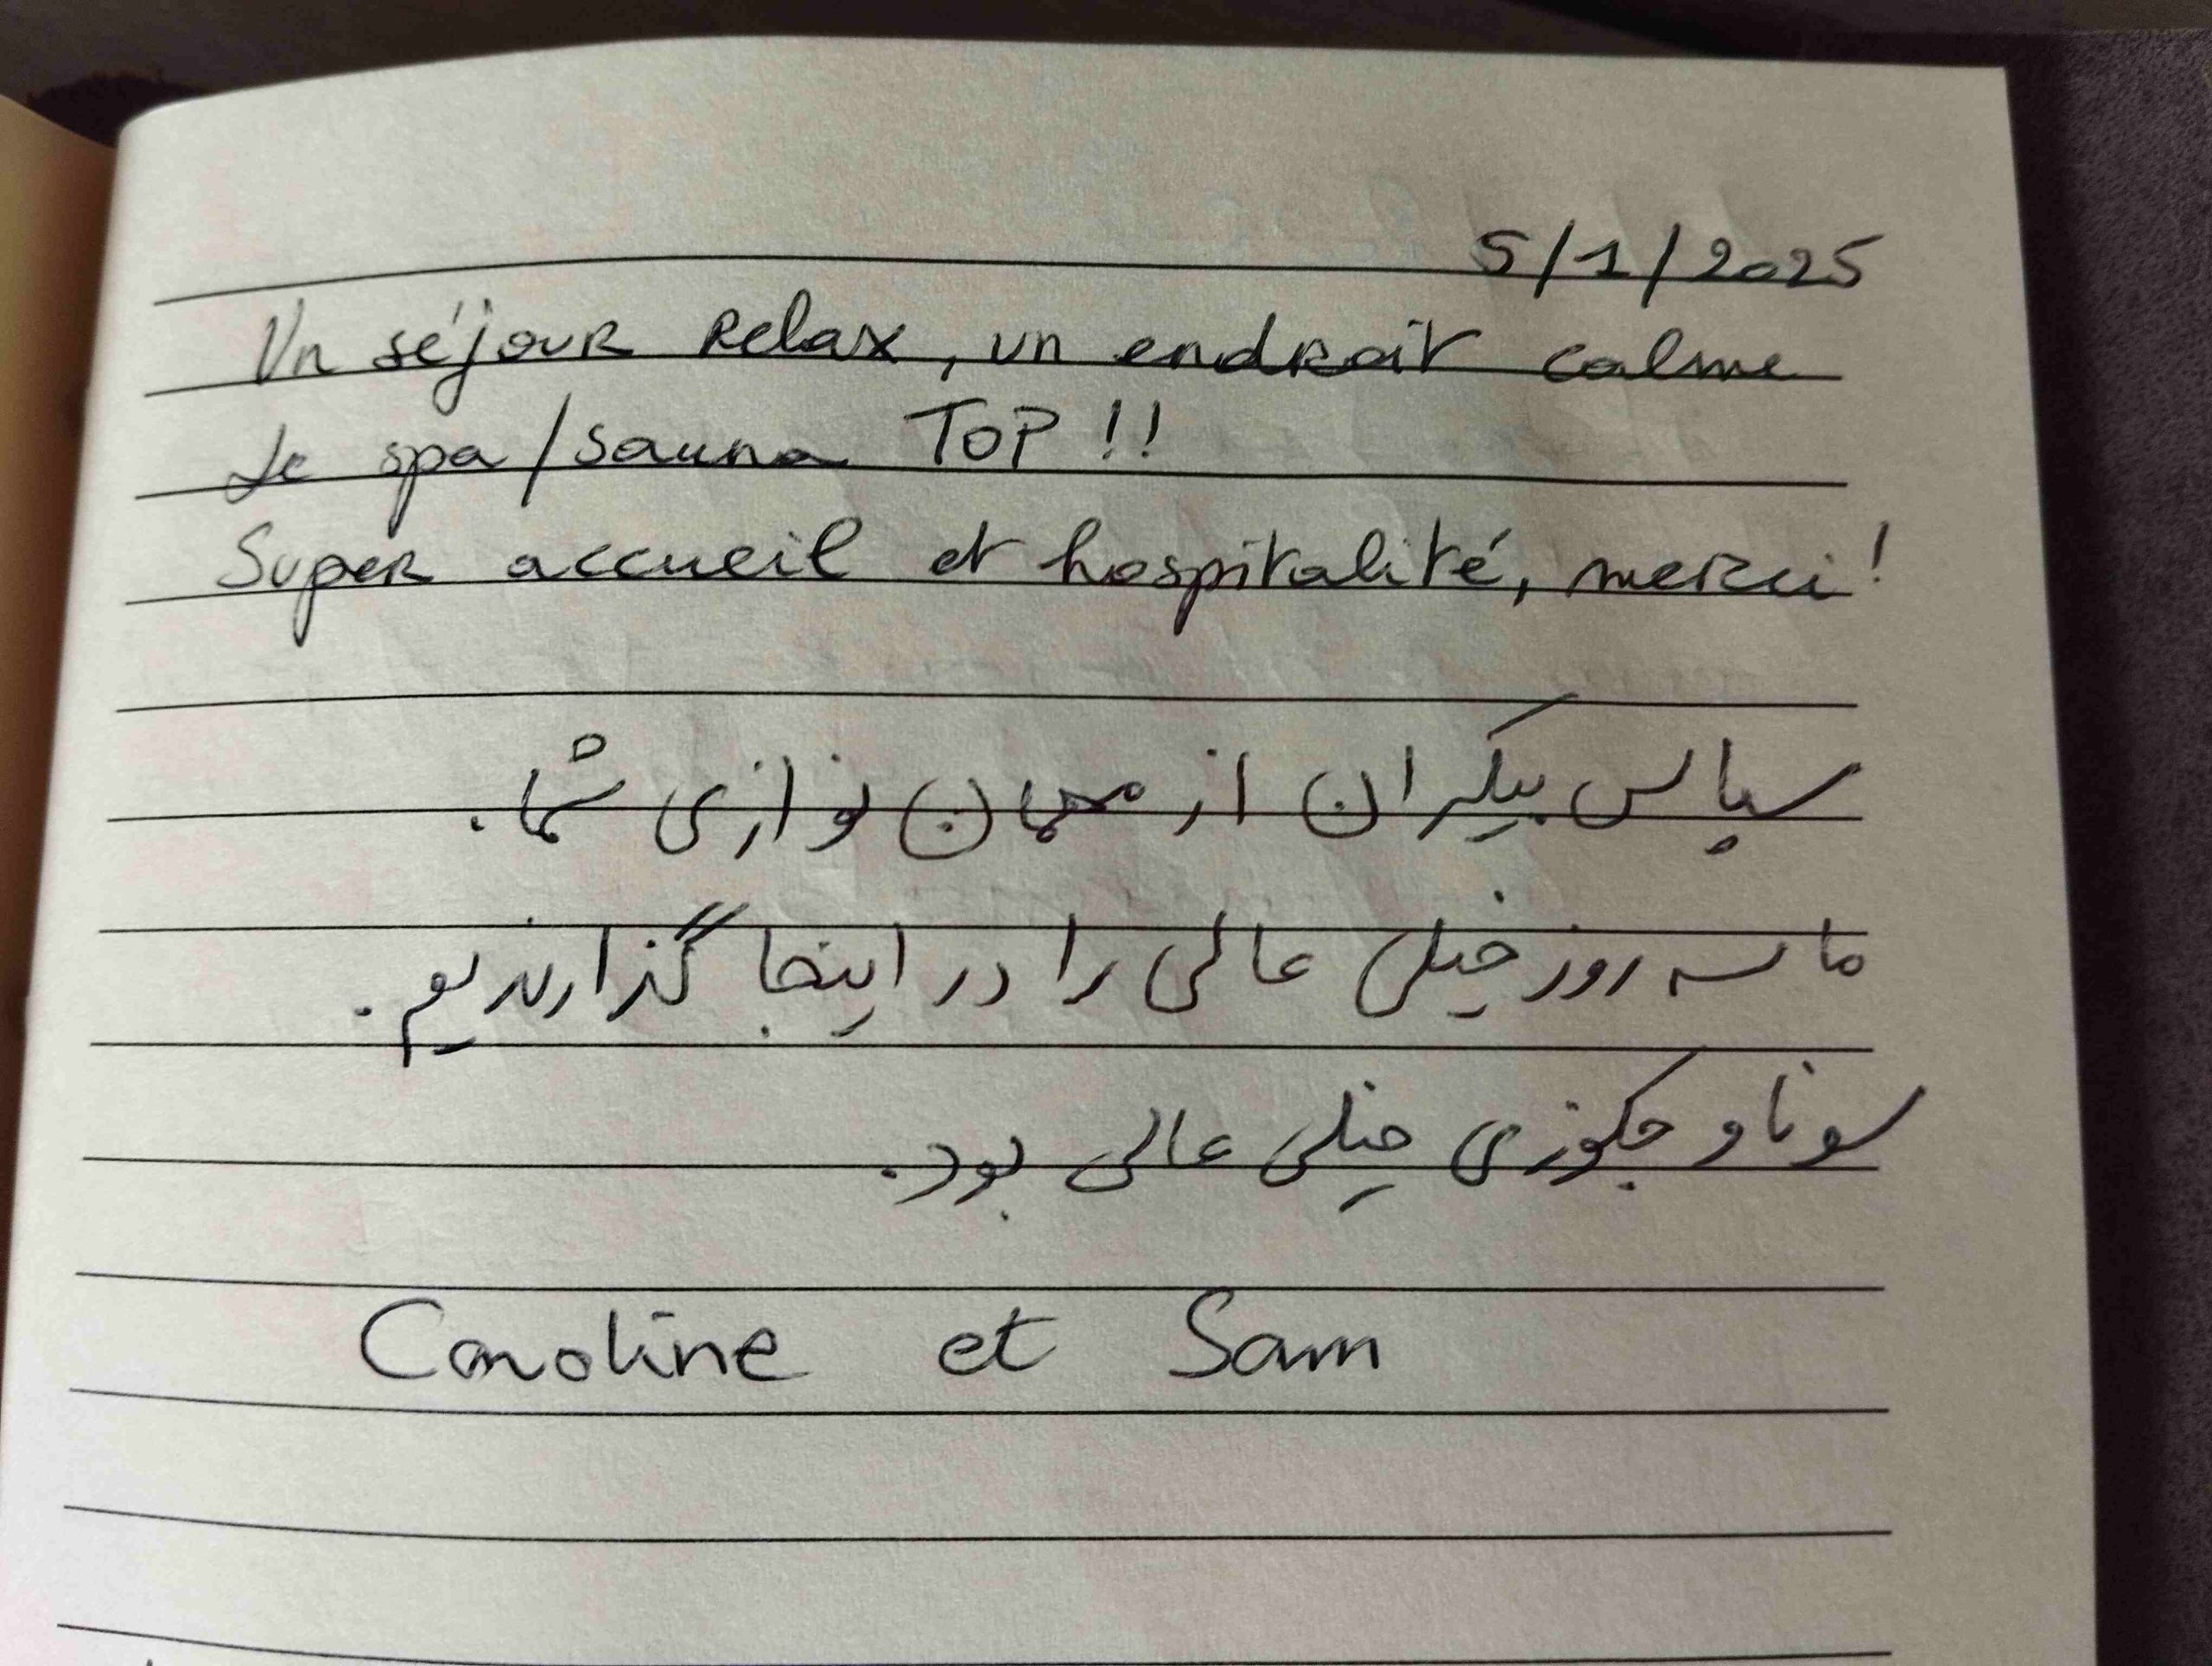 5/1/2025
Un séjour Relax, un endroit calme
Le spa/sauna TOP !!
Super accueil et hospitalité, merci!
سپاس بیکران از مهمان نوازی شما.
ما سه روز خیلی عالی را در اینجا گذارندیم.
سونا و جکوزی خیلی عالی بود.
Caroline et Sam